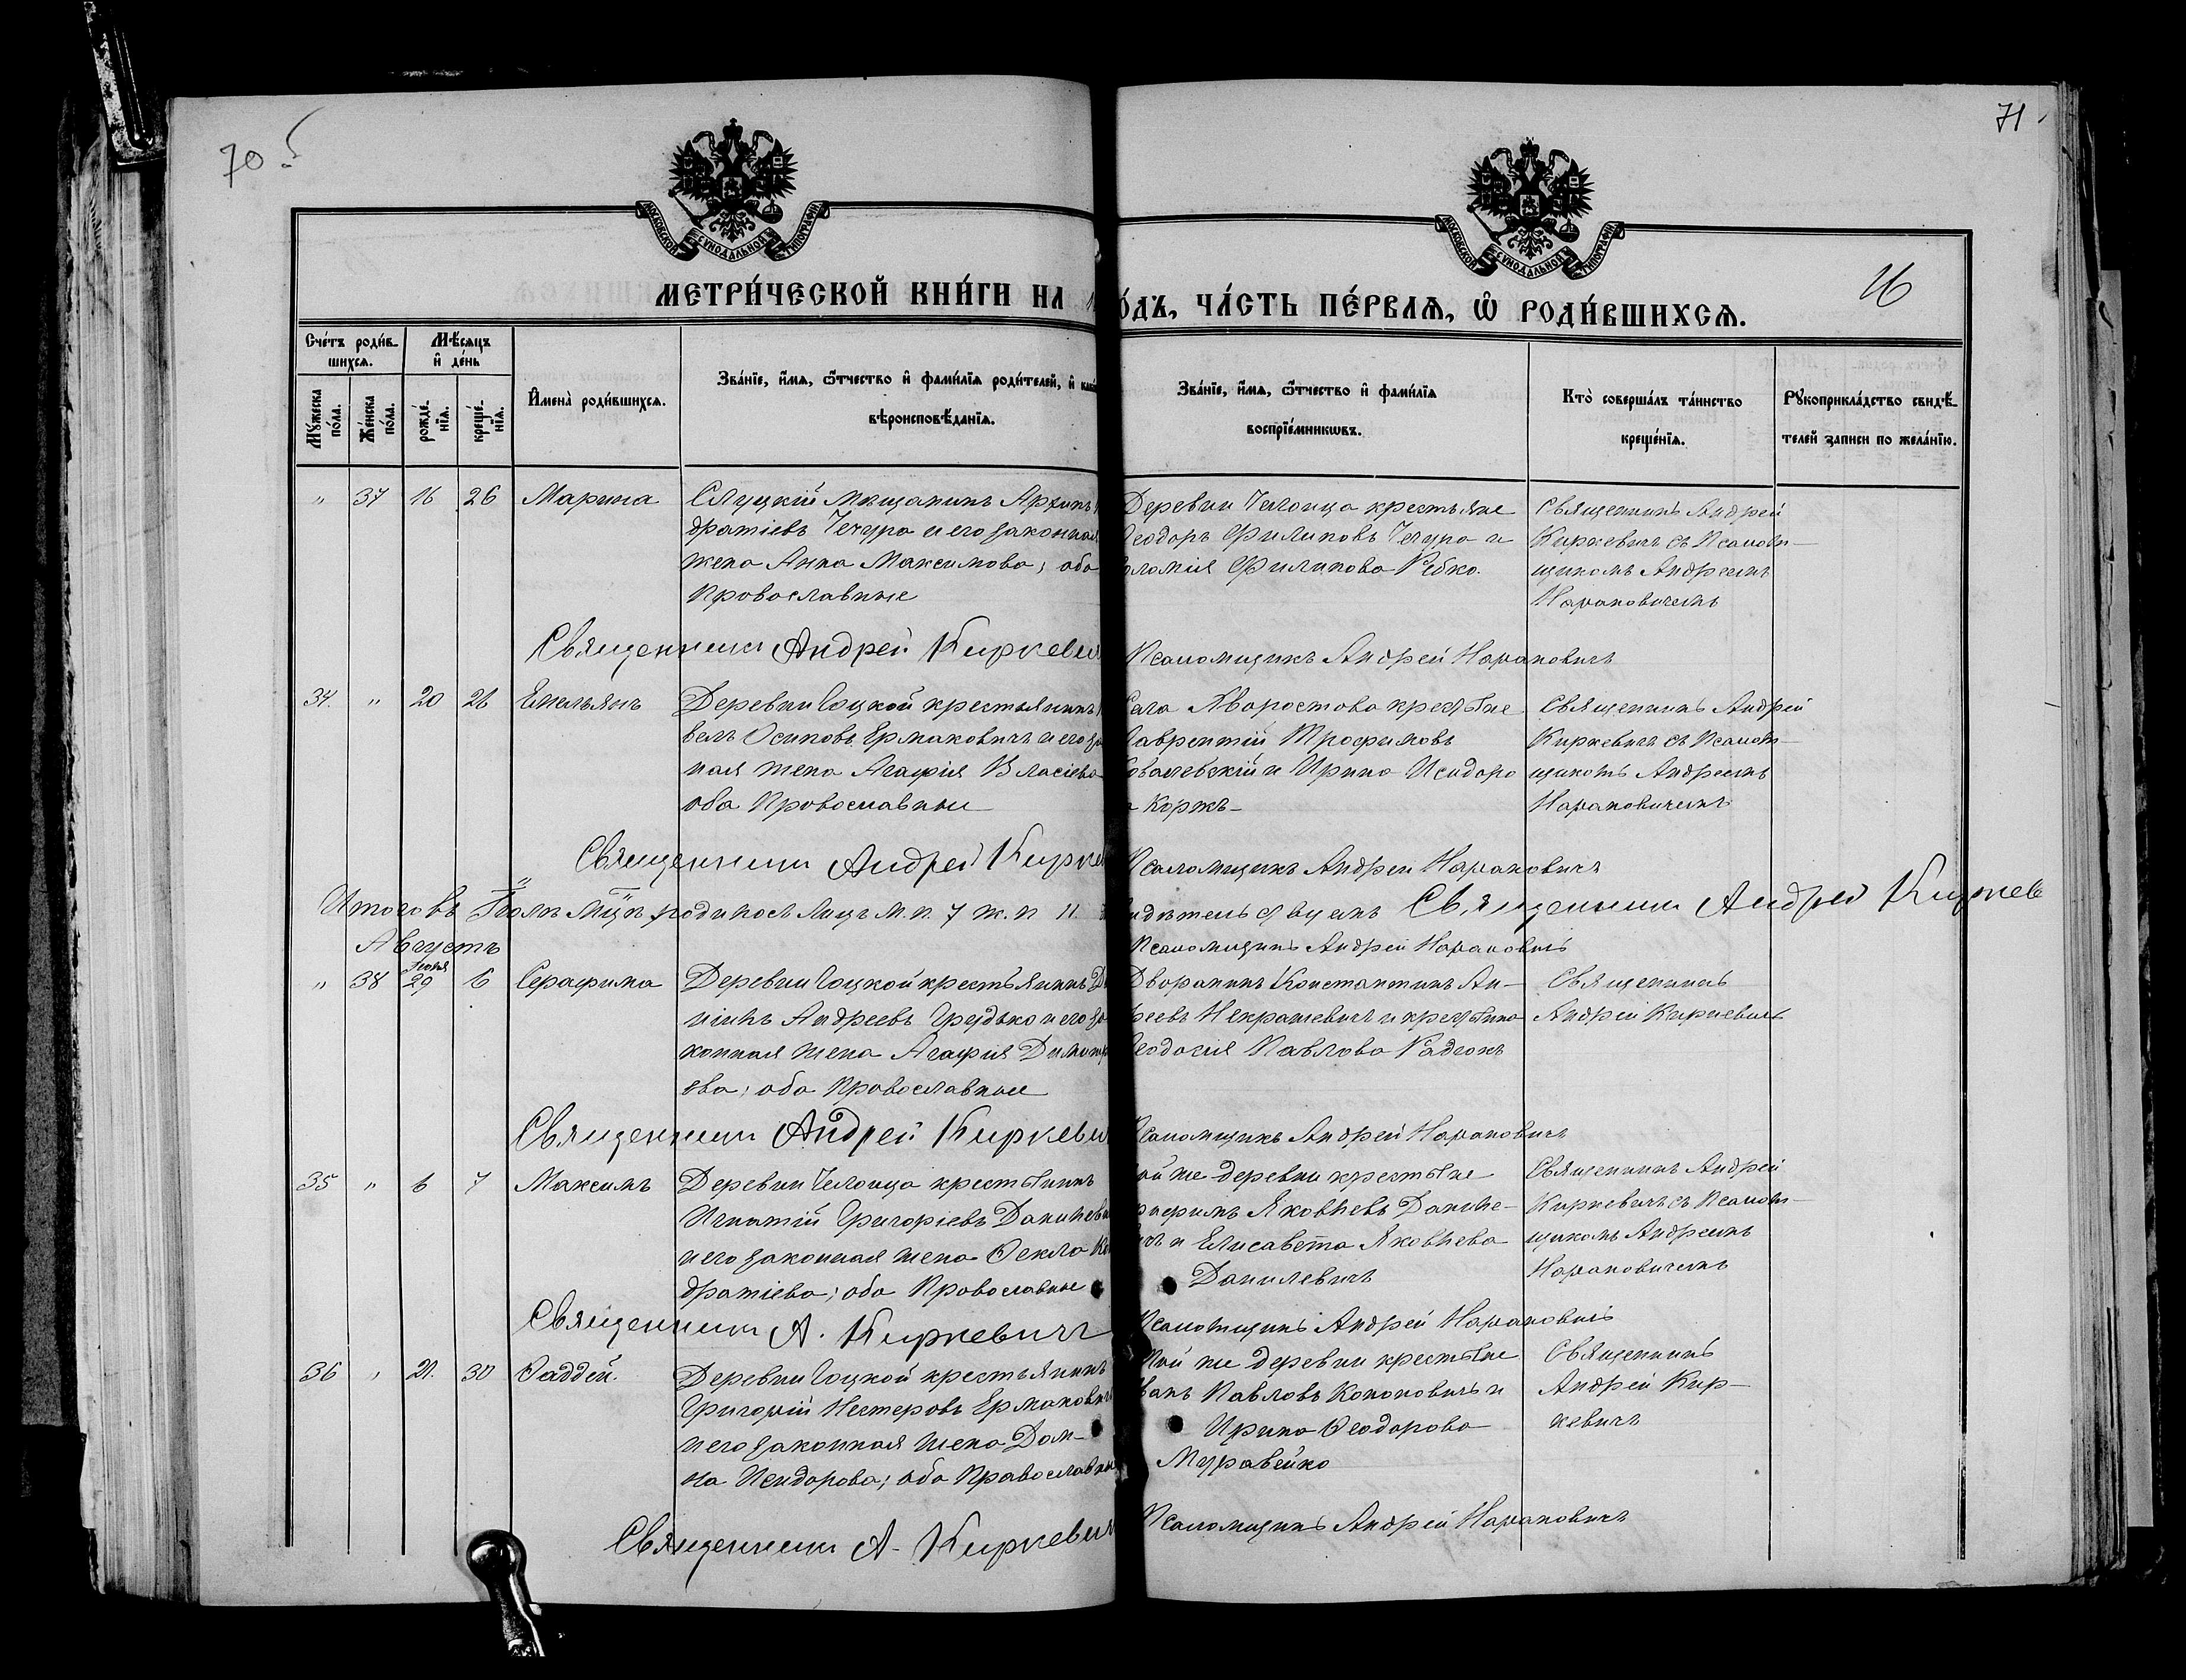 70
71
МОСКОВСКОЙ СѴНОДАЛЬНОЙ ТИПОГРАФІИ
МОСКОВСКОЙ СѴНОДАЛЬНОЙ ТИПОГРАФІИ
16
МЕТРИ́ЧЕСКОЙ КНИ́ГИ НА
О́ДЪ, ЧА́СТЬ ПЕ́РВАѦ, Ѡ҆ РОДИ́ВШИХСѦ.
Сче́тъ роди́в-
шихсѧ.
Мѣ́сѧцъ
и҆ де́нь
Мꙋ́жеска
по́ла.
Же́нска
по́ла.
рожде́-
нїѧ.
креще́-
нїѧ.
И҆мена̀ роди́вшихсѧ.
Зва́нїе, и҆́мѧ, ѻ҆́тчество и҆ фами́лїѧ роди́телей, и҆ как
вѣроисповѣ́данїѧ.
Зва́нїе, и҆́мѧ, ѻ҆́тчество и҆ фами́лїѧ
воспрїе́мникѡвъ.
Кто̀ соверша́лъ та́инство
креще́нїѧ.
Рꙋкоприкла́дство свидѣ́-
телей записи по жела́нїю.
" 37 16 26 Марина
Слуцкій мѣщанинъ Архипъ
дратіевъ Чечура и его законная
жена Анна Максимова; оба
Православные
Деревни Челонца крестьяне
еодоръ Филиповъ Чечура и
оломія Филипова Рѣбко.
Священникъ Андрей
Киркевичъ съ Псалом-
щикомъ Андреемъ
Нарановичемъ
Священникъ Андрей Киркевич
Псаломщикъ Андрей Нарановичъ
34. " 20 26 Емельянъ
Деревни Гоцкой крестьянинъ
велъ Осиповъ Ермаковичъ и его за
ная жена Агафія Власіева
оба Православные
Села Хворостова крестьяне
Лаврентій Трофимовъ
Ковалевскій и Ирина Исидоро
а Коржъ
Священникъ Андрей
Киркевичъ съ Псалом-
щикомъ Андреемъ
Нарановичемъ
Священникъ Андрей Кирке
Псаломщикъ Андрей Нарановичъ
Итого въ Іюлѣ мцѣ родилось лицъ м.п. 7 ж.п 11
Священникъ Андрей Киркев
Августъ
Псаломщикъ Андрей Нарановичъ
" 38 Іюля 29 6 Серафима
Деревни Гоцкой крестьянинъ
ніилъ Андреевъ Грудько и его за
конная жена Агафія Димитр
ева; оба Православные
Дворянинъ Константинъ Ан-
реевъ Некрашевичъ и крестьянка
еодосія Павлова Радюкъ
Священникъ
Андрей Киркевичъ
Священникъ Андрей Киркевич
Псаломщикъ Андрей Нарановичъ
35 " 6 7 Максимъ
Деревни Челонца крестьянинъ
Игнатій Григоріевъ Данилеви
и его законная жена Ѳекла Ко
дратіева; оба Православные
ой же деревни крестьяне
Яковлевъ Даниле-
ичъ и Елисавета Яковлева
Данилевичъ
Священникъ Андрей
Киркевичъ съ Псалом-
щикомъ Андреемъ
Нарановичемъ
Священникъ А. Киркевичъ
Псаломщикъ Андрей Нарановичъ
36 " 21. 30 Ѳаддей.
Деревни Гоцкой крестьянинъ
Григорій Нестеровъ Ермакович
и его законная жена Дом-
на Исидорова; оба Православны
Той же деревни крестьяне
Иванъ Павловъ Кононовичъ и
Ирина Ѳеодорова
Муравейко
Священникъ
Андрей Кир-
кевичъ
Священникъ А. Киркевич
Псаломщикъ Андрей Нарановичъ